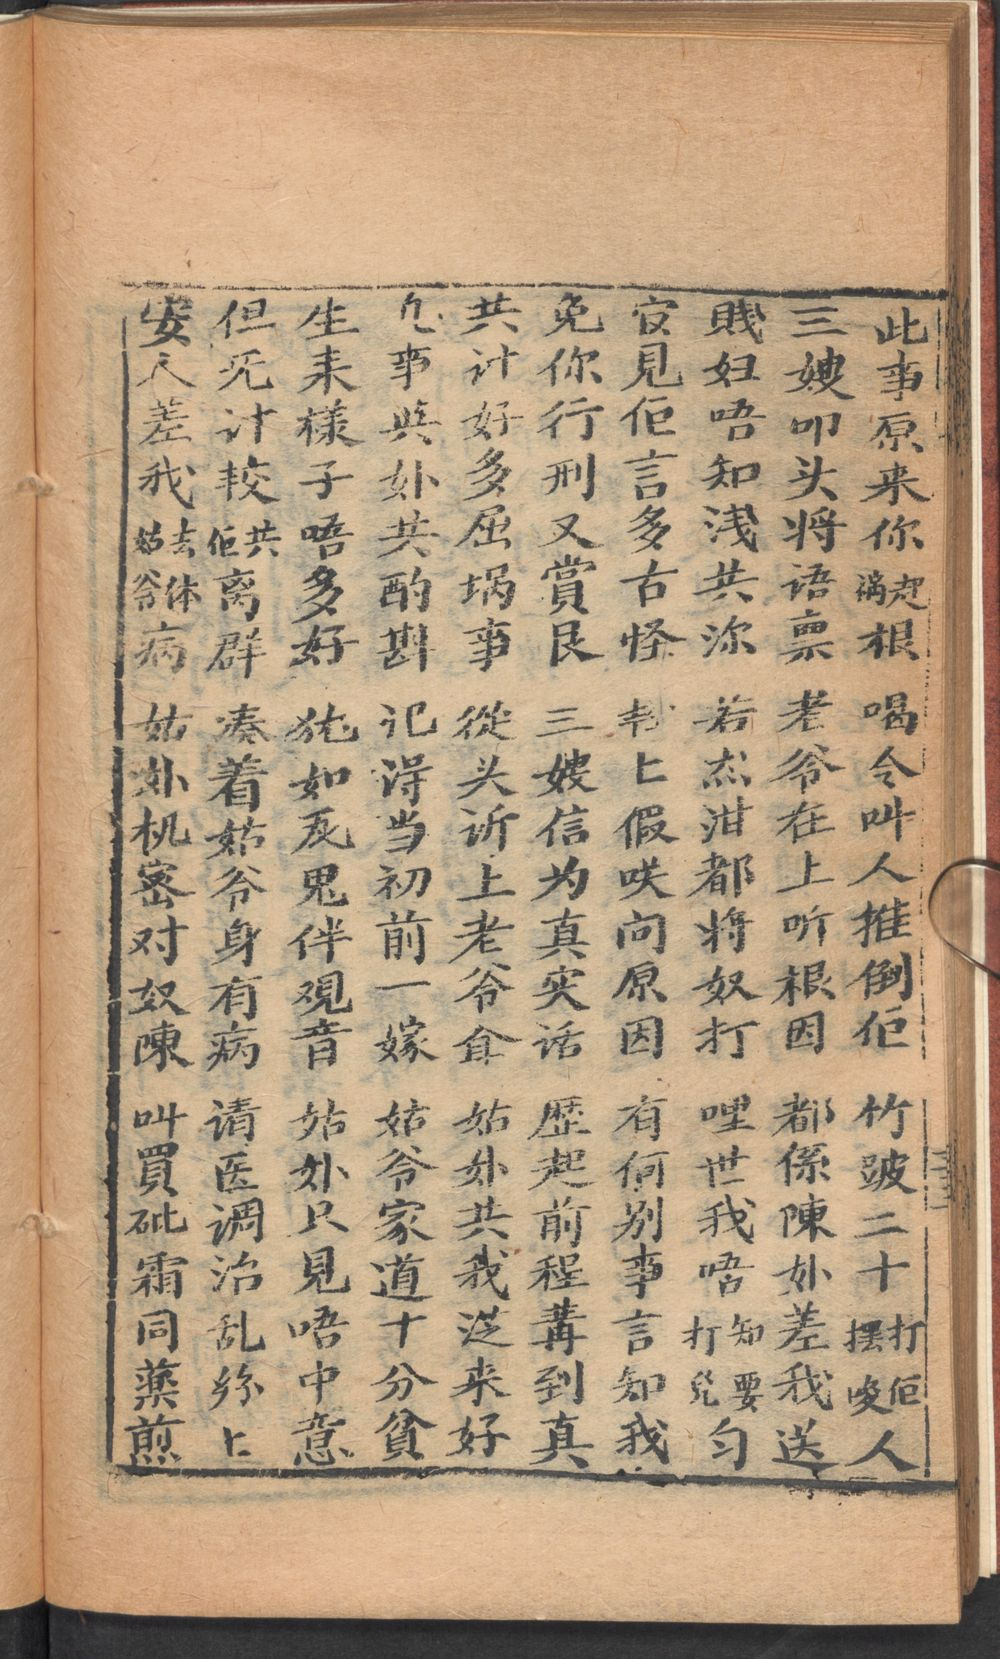 此事原来你起祸根　喝令叫人推倒佢　竹䇶二十打佢摆唆人
三嫂叩头将语禀　老爷在上听根因　都係陳妚差我送
賎妇唔知浅共深　若然泔都将奴打　哩世我唔知要打兒匀
官見佢言多古怪　上假咲问原因　有何别事言知我
免你行刑又賞艮　三嫂信为真实话　歴起前程講到真
共计好多屈埚事　從头诉上老爷
 耸　姑妚共我送来好
凢事與妚共酌斟　记淂当初前一嫁　姑爷家道十分貧
生来樣子唔多好　犹如瓦鬼伴观音　姑妚只見唔中意
但无计較共佢离群　凑着姑爷身有病　请医调治乱纷上
安人差我去体姑爷病　姑妚机密对奴陳　叫買砒霜同薬煎